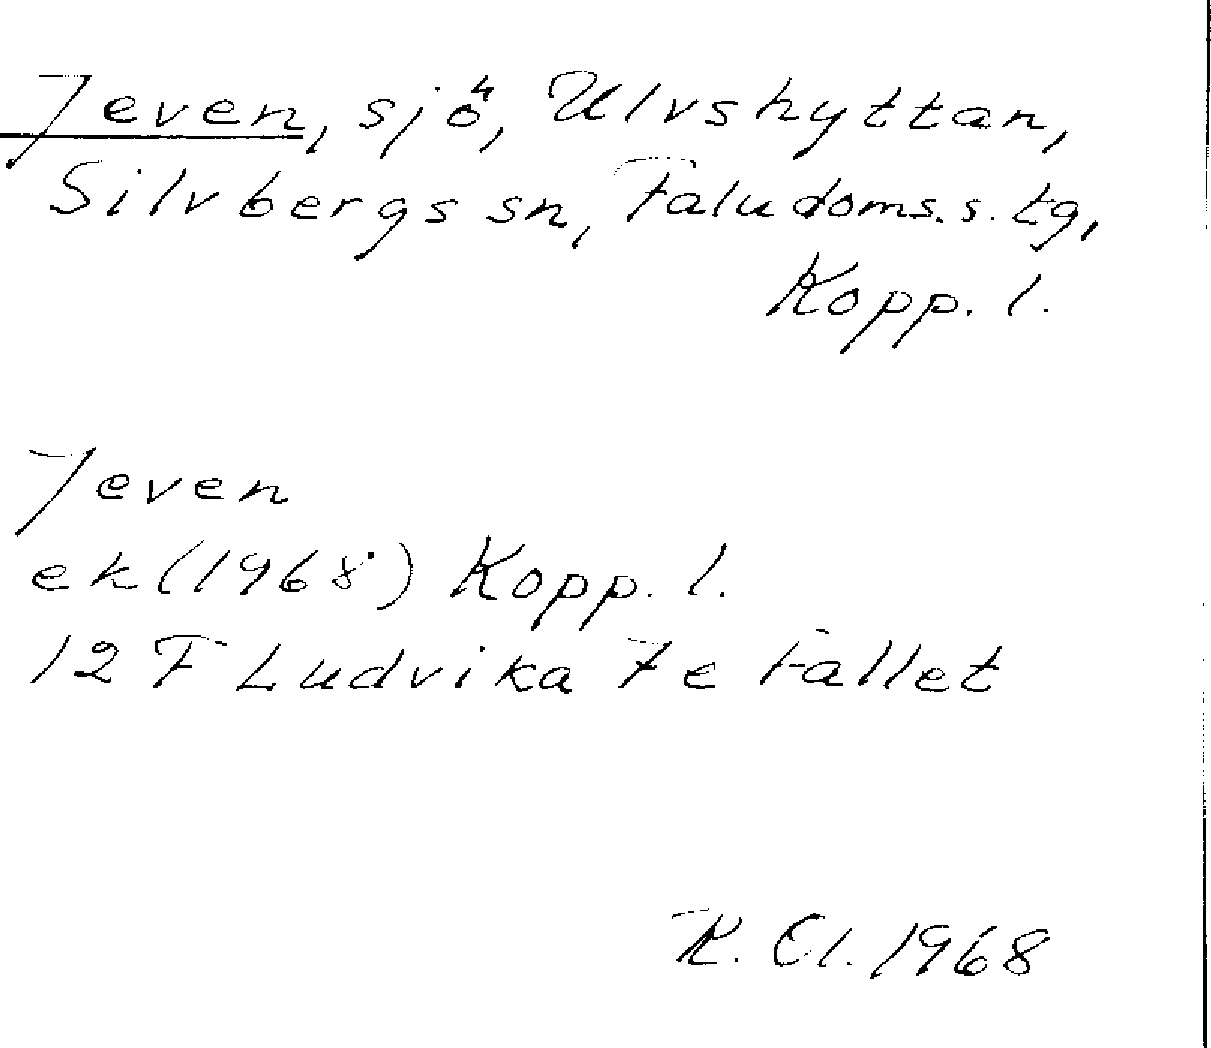 Jeven, sjö, Ulvshyttan,
Silvbergs sn, Falu doms.s. tg,
Kopp. l.
Jeven
ek (1968) Kopp. l.
12 F Ludvika 7 e Fallet
K. Ol. 1968